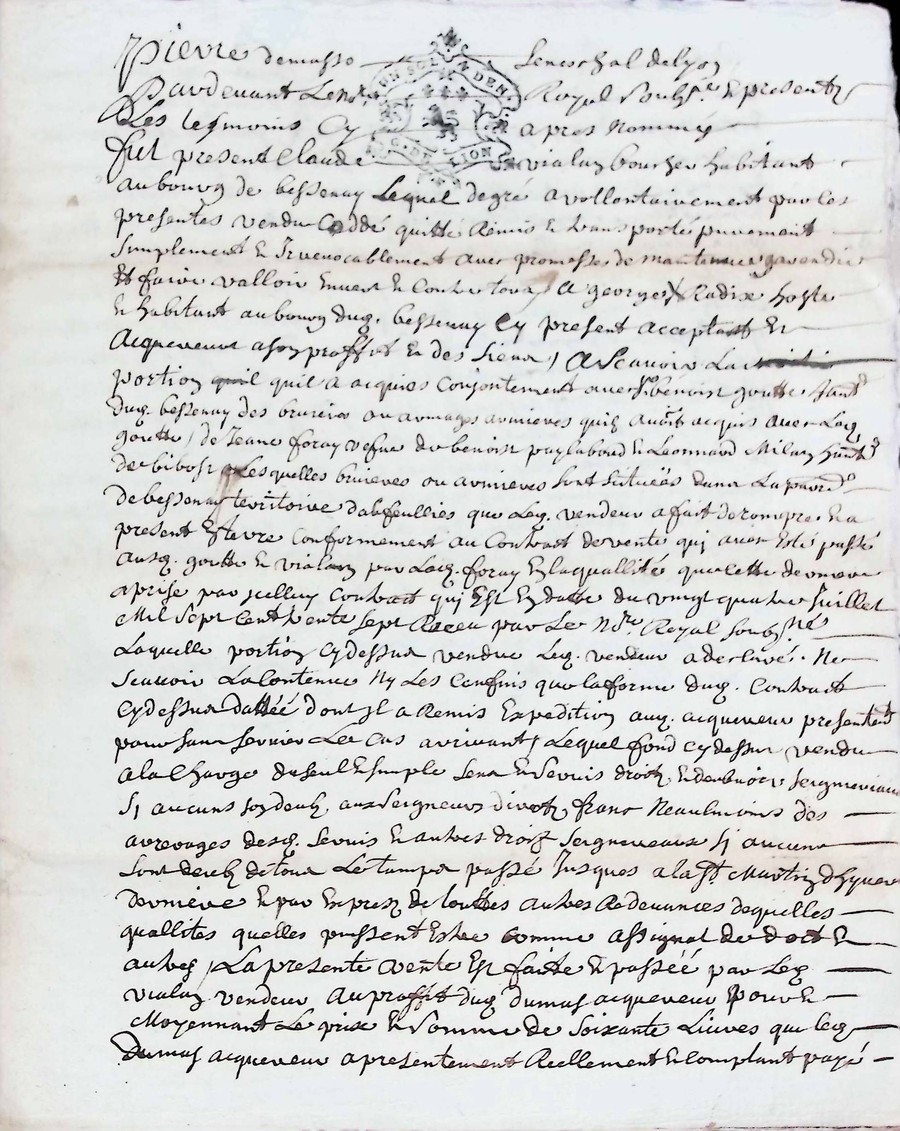 Pierre demasso Seneschal de lyon
Pardevant Le no.re Royal soubs.né & presentz
Les tesmoins Cy apres Nommés
fut present Claude vialaz boucher habitant
au bourg de bessenay Lequel de gré a vollontairement par les
presentes vendu Ceddé quitté Remis & transporté purement
simplement & Irrevocablement avec promesses de maintenir garendir
Et faire valloir envers & Contre tous A george Radix hoste
& habitant au bourg dud. bessenay Cy present acceptant &
Acquereur a son proffit & des siens / A Scavoir La
portion quil a acquies Conjontement avec benoist goutte hant
dud. bessenay des bruieres ou armieres quilz avoit acquis avec Led.
goutte / de Jeane foray vefve de benoist puylaboud & Leonnard Milan
de bibost Lesquelles bruieres ou armieres sont scituées dans La parr.
de bessenay territoire dabfeullies que Led. vendeur a fait derompre & a
present Est terre Conformement au Contract de vente qui avoit Esté passé
ausd. goutte & vialaz par Lad. foray En la quallité quelle
a prise par icelluy Contract qui Est En datte du vingt quatre Juillet
Mil Sept Cent trente sept Receu par Le No.re Royal soubs.né
Laquelle portion Cy dessus vendue Led. vendeur a declaré Ne
Scavoir La Contenue Ny Les Confins que la forme dud. Contract
Cy dessus datteé dont il a Remis Expedition aud. acquereur presentent
pour sans servir Le Cas arrivant / Lequel fond Cy dessus vendu
a la Charge du seul & simple Sens & Servis droits &
Si aucuns son deub aux Seigneurs directz franc Neaulmoins des
arrerages desd. Servis & autres droits Seigneureaux Si aucuns
sont deub de tous Le tamps passé Jusques a la St. Martin Dhyvert
derniere & par Expres de touttes autres Redevances de quelles
quallites quelles puissent Estre Comme assignal de dot &
autres / La presente vente Est faite & passéé par Led.
vialaz vendeur Au proffit dud. dumas acquereur pour &
Moyennant Le prix & Somme de Soixante Livres que led.
Dumas acquereur a presentement Reellement & Comptant payé